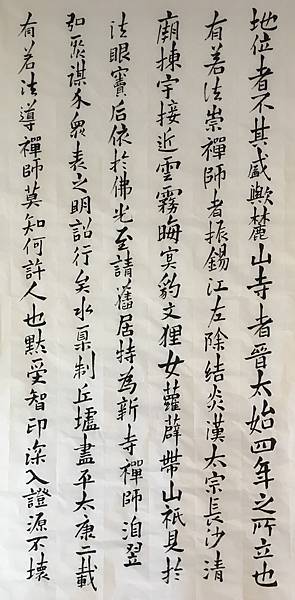 地位者不其盛歟麓山寺者晉太始四年之所立也
有若法崇禪師者振錫江左除結炎漢太宗長沙清
廟棟宇接近雲霧晦冥豹文狸女蘿薜帶山祇見於
法眼竇后依於佛光至請舊居特為新寺禪師洎翌
弘聚謀介眾表之明詔行矣水臬制丘墟盡平太康二載
有若法導禪師莫知何許人也默受智印深入證源不壞